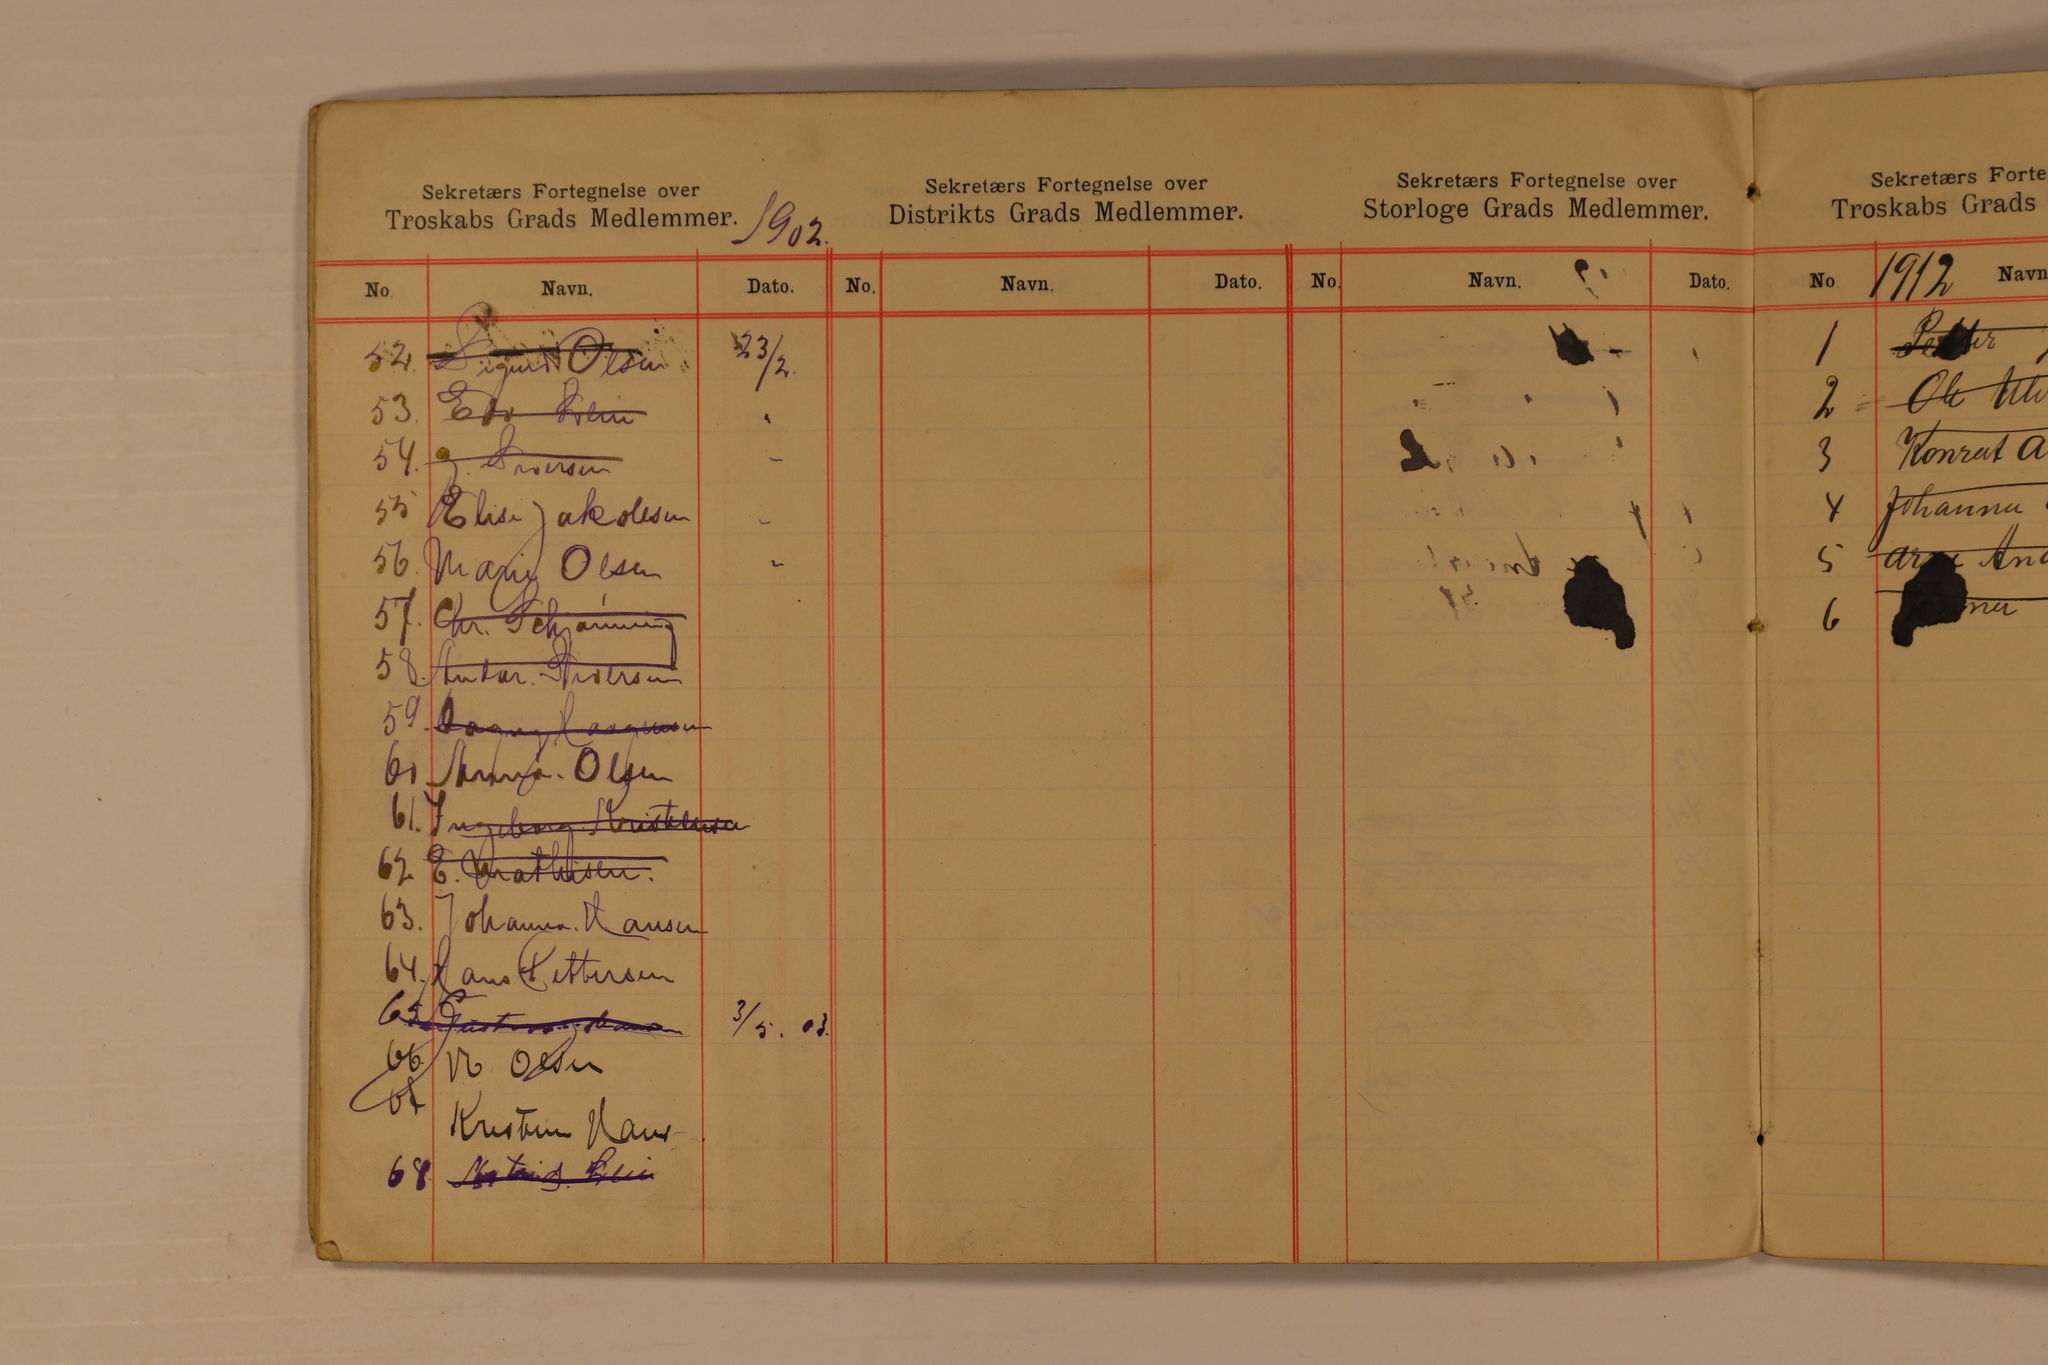 Sekretærs Fortegnelse over
Troskabs Grads Medlemmer. 1902.
No. Navn. Dato.
52. Sigurd Olsen 23/2.
53. Edv Klein
54. J. Iversen
55 Elise Jakobsen
56. Marie Olsen
57. Chr. Schjønning
58. Anton. Andersen
59. Dagny Magnussen
60 Anna. Olsen
61. Ingeborg Kristensen
62 E. Mathisen.
63. Johanna. Hansen
64. Hans Pettersen
65. 3/5. 03.
66 Olsen
67 Kristine Hans
68. Klein
Sekretærs Fortegnelse over
Distrikts Grads Medlemmer.
No. Navn. Dato.
Sekretærs Fortegnelse over
Storloge Grads Medlemmer.
No. Navn. Dato.
Sekretærs Forte
Troskabs Grads
No. 1912 Navn
1 Petter
2 Ole
3 Konrat A
4 Johanna
5 Arne And
6